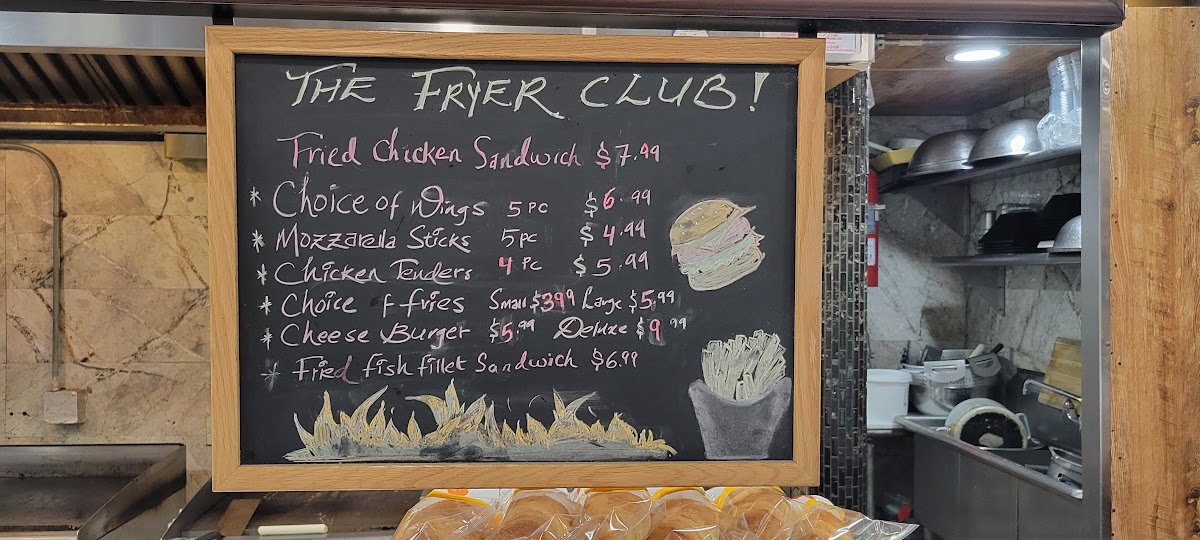 THE FRYER CLUB!
Fried Chicken Sandwich $7.99
* Choice of Wings 5 PC $6.99
* Mozzarella Sticks 5 PC $4.99
* Chicken Tenders 4 PC $5.99
* Choice f fries Small $3.99 Large $5.99
* Cheese Burger $5.99 Deluxe $9.99
* Fried fish fillet Sandwich $6.99